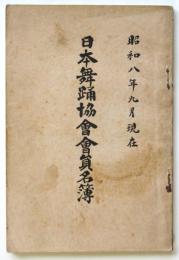 昭和八年九月現在
日本舞踊協會會員名簿